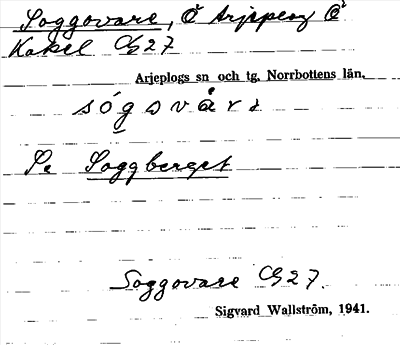 Soggovare, Ö Arjeplog Ö
Kakel C27
Arjeplogs sn och tg. Norrbottens län.
sógovårɛ
Se Soggberget
Soggovare C27.
Sigvard Wallström, 1941.